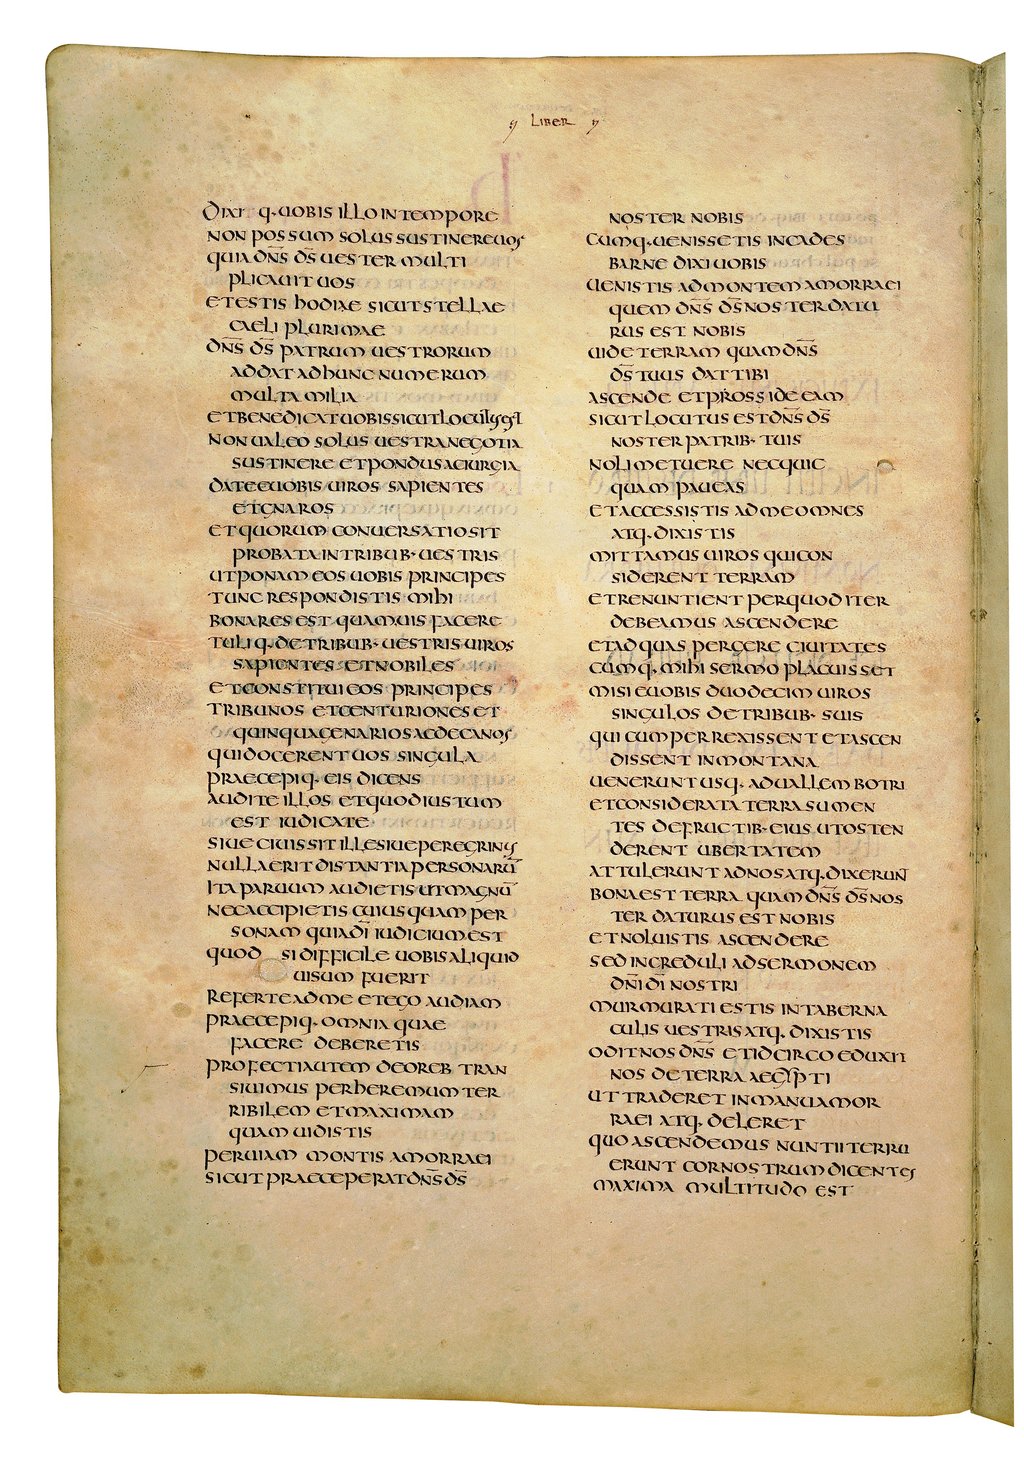 LIBER
DIXI Q· UOBIS ILLO IN TEMPORE
NON POSSUM SOLUS SUSTINERE UOS
QUIA DNS DS UESTER MULTI
PLICAUIT UOS
ET ESTIS HODIAE SICUT STELLAE
CAELI PLURIMAE
DNS DS PATRUM UESTRORUM
ADDAT AD HUNC NUMERUM
MULTA MILIA
ET BENEDICAT UOBIS SICUT LOCUTUS EST
NON UALEO SOLUS UESTRA NEGOTIA
SUSTINERE ET PONDUS AC IURGIA
DATE E UOBIS UIROS SAPIENTES
ET GNAROS
ET QUORUM CONUERSATIO SIT
PROBATA IN TRIBUB· UESTRIS
UT PONAM EOS UOBIS PRINCIPES
TUNC RESPONDISTIS MIHI
BONA RES EST QUAM UIS FACERE
TULI Q· DE TRIBUB· UESTRIS UIROS
SAPIENTES ET NOBILES
ET CONSTITUI EOS PRINCIPES
TRIBUNOS ET CENTURIONES ET
QUINQUAGENARIOS AC DECANOS
QUI DOCERENT UOS SINGULA
PRAECEPI Q· EIS DICENS
AUDITE ILLOS ET QUOD IUSTUM
EST IUDICATE
SIUE CIUIS SIT ILLE SIUE PEREGRINUS
NULLA ERIT DISTANTIA PERSONARŪ
ITA PARUUM AUDIETIS UT MAGNŪ
NEC ACCIPIETIS CUIUSQUAM PER
SONAM QUIA DĪ IUDICIUM EST
QUOD SI DIFFICILE UOBIS ALIQUID
UISUM FUERIT
REFERTE AD ME ET EGO AUDIAM
PRAECEPI Q· OMNIA QUAE
FACERE DEBERETIS
PROFECTI AUTEM DE OREB TRAN
SIUIMUS PER HEREMUM TER
RIBILEM ET MAXIMAM
QUAM UIDISTIS
PER UIAM MONTIS AMORRAEI
SICUT PRAECEPERAT DNS DS
NOSTER NOBIS
CUMQ· UENISSETIS IN CADES
BARNE DIXI UOBIS
UENISTIS AD MONTEM AMORRAEI
QUEM DNS DS NOSTER DATU
RUS EST NOBIS
UIDE TERRAM QUAM DNS
DS TUUS DAT TIBI
ASCENDE ET POSSIDE EAM
SICUT LOCUTUS EST DNS DS
NOSTER PATRIB· TUIS
NOLI METUERE NEC QUIC
QUAM PAUEAS
ET ACCESSISTIS AD ME OMNES
ATQ· DIXISTIS
MITTAMUS UIROS QUI CON
SIDERENT TERRAM
ET RENUNTIENT PER QUOD ITER
DEBEAMUS ASCENDERE
ET AD QUAS PERGERE CIUITATES
CUMQ· MIHI SERMO PLACUISSET
MISI E UOBIS DUODECIM UIROS
SINGULOS DE TRIBUB· SUIS
QUI CUM PERREXISSENT ET ASCEN
DISSENT IN MONTANA
UENERUNT USQ· AD UALLEM BOTRI
ET CONSIDERATA TERRA SUMEN
TES DE FRUCTIB· EIUS UT OSTEN
DERENT UBERTATEM
ATTULERUNT AD NOS ATQ· DIXERUNT
BONA EST TERRA QUAM DNS DS NOS
TER DATURUS EST NOBIS
ET NOLUISTIS ASCENDERE
SED INCREDULI AD SERMONEM
DNI DI NOSTRI
MURMURATI ESTIS IN TABERNA
CULIS UESTRIS ATQ· DIXISTIS
ODIT NOS DNS ET IDCIRCO EDUXIT
NOS DE TERRA AEGYPTI
UT TRADERET IN MANU AMOR
RAEI ATQ· DELERET
QUO ASCENDEMUS NUNTII TERRU
ERUNT COR NOSTRUM DICENTES
MAXIMA MULTITUDO EST